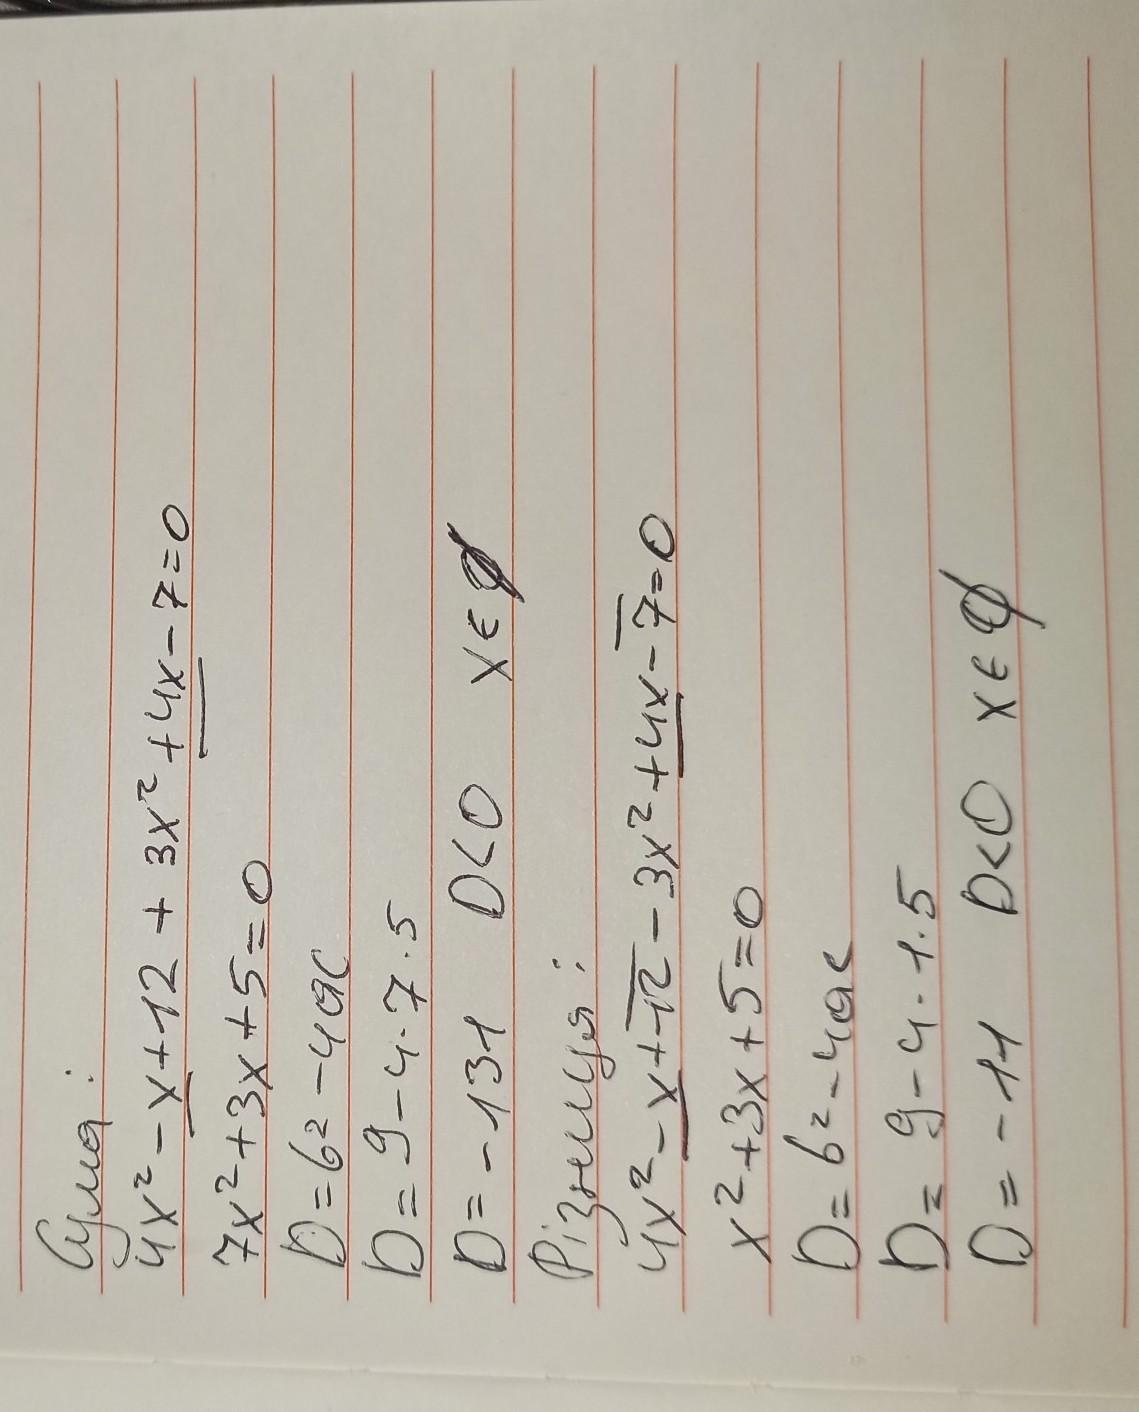 Сума:
4x² - x + 12 + 3x² + 4x - 7 = 0
7x² + 3x + 5 = 0
D = b² - 4ac
D = 9 - 4 · 7 · 5
D = - 131 D < 0 x ∈ ∅
Різниця:
4x² - x + 12 - 3x² + 4x - 7 = 0
x² + 3x + 5 = 0
D = b² - 4ac
D = 9 - 4 · 1 · 5
D = - 11 D < 0 x ∈ ∅